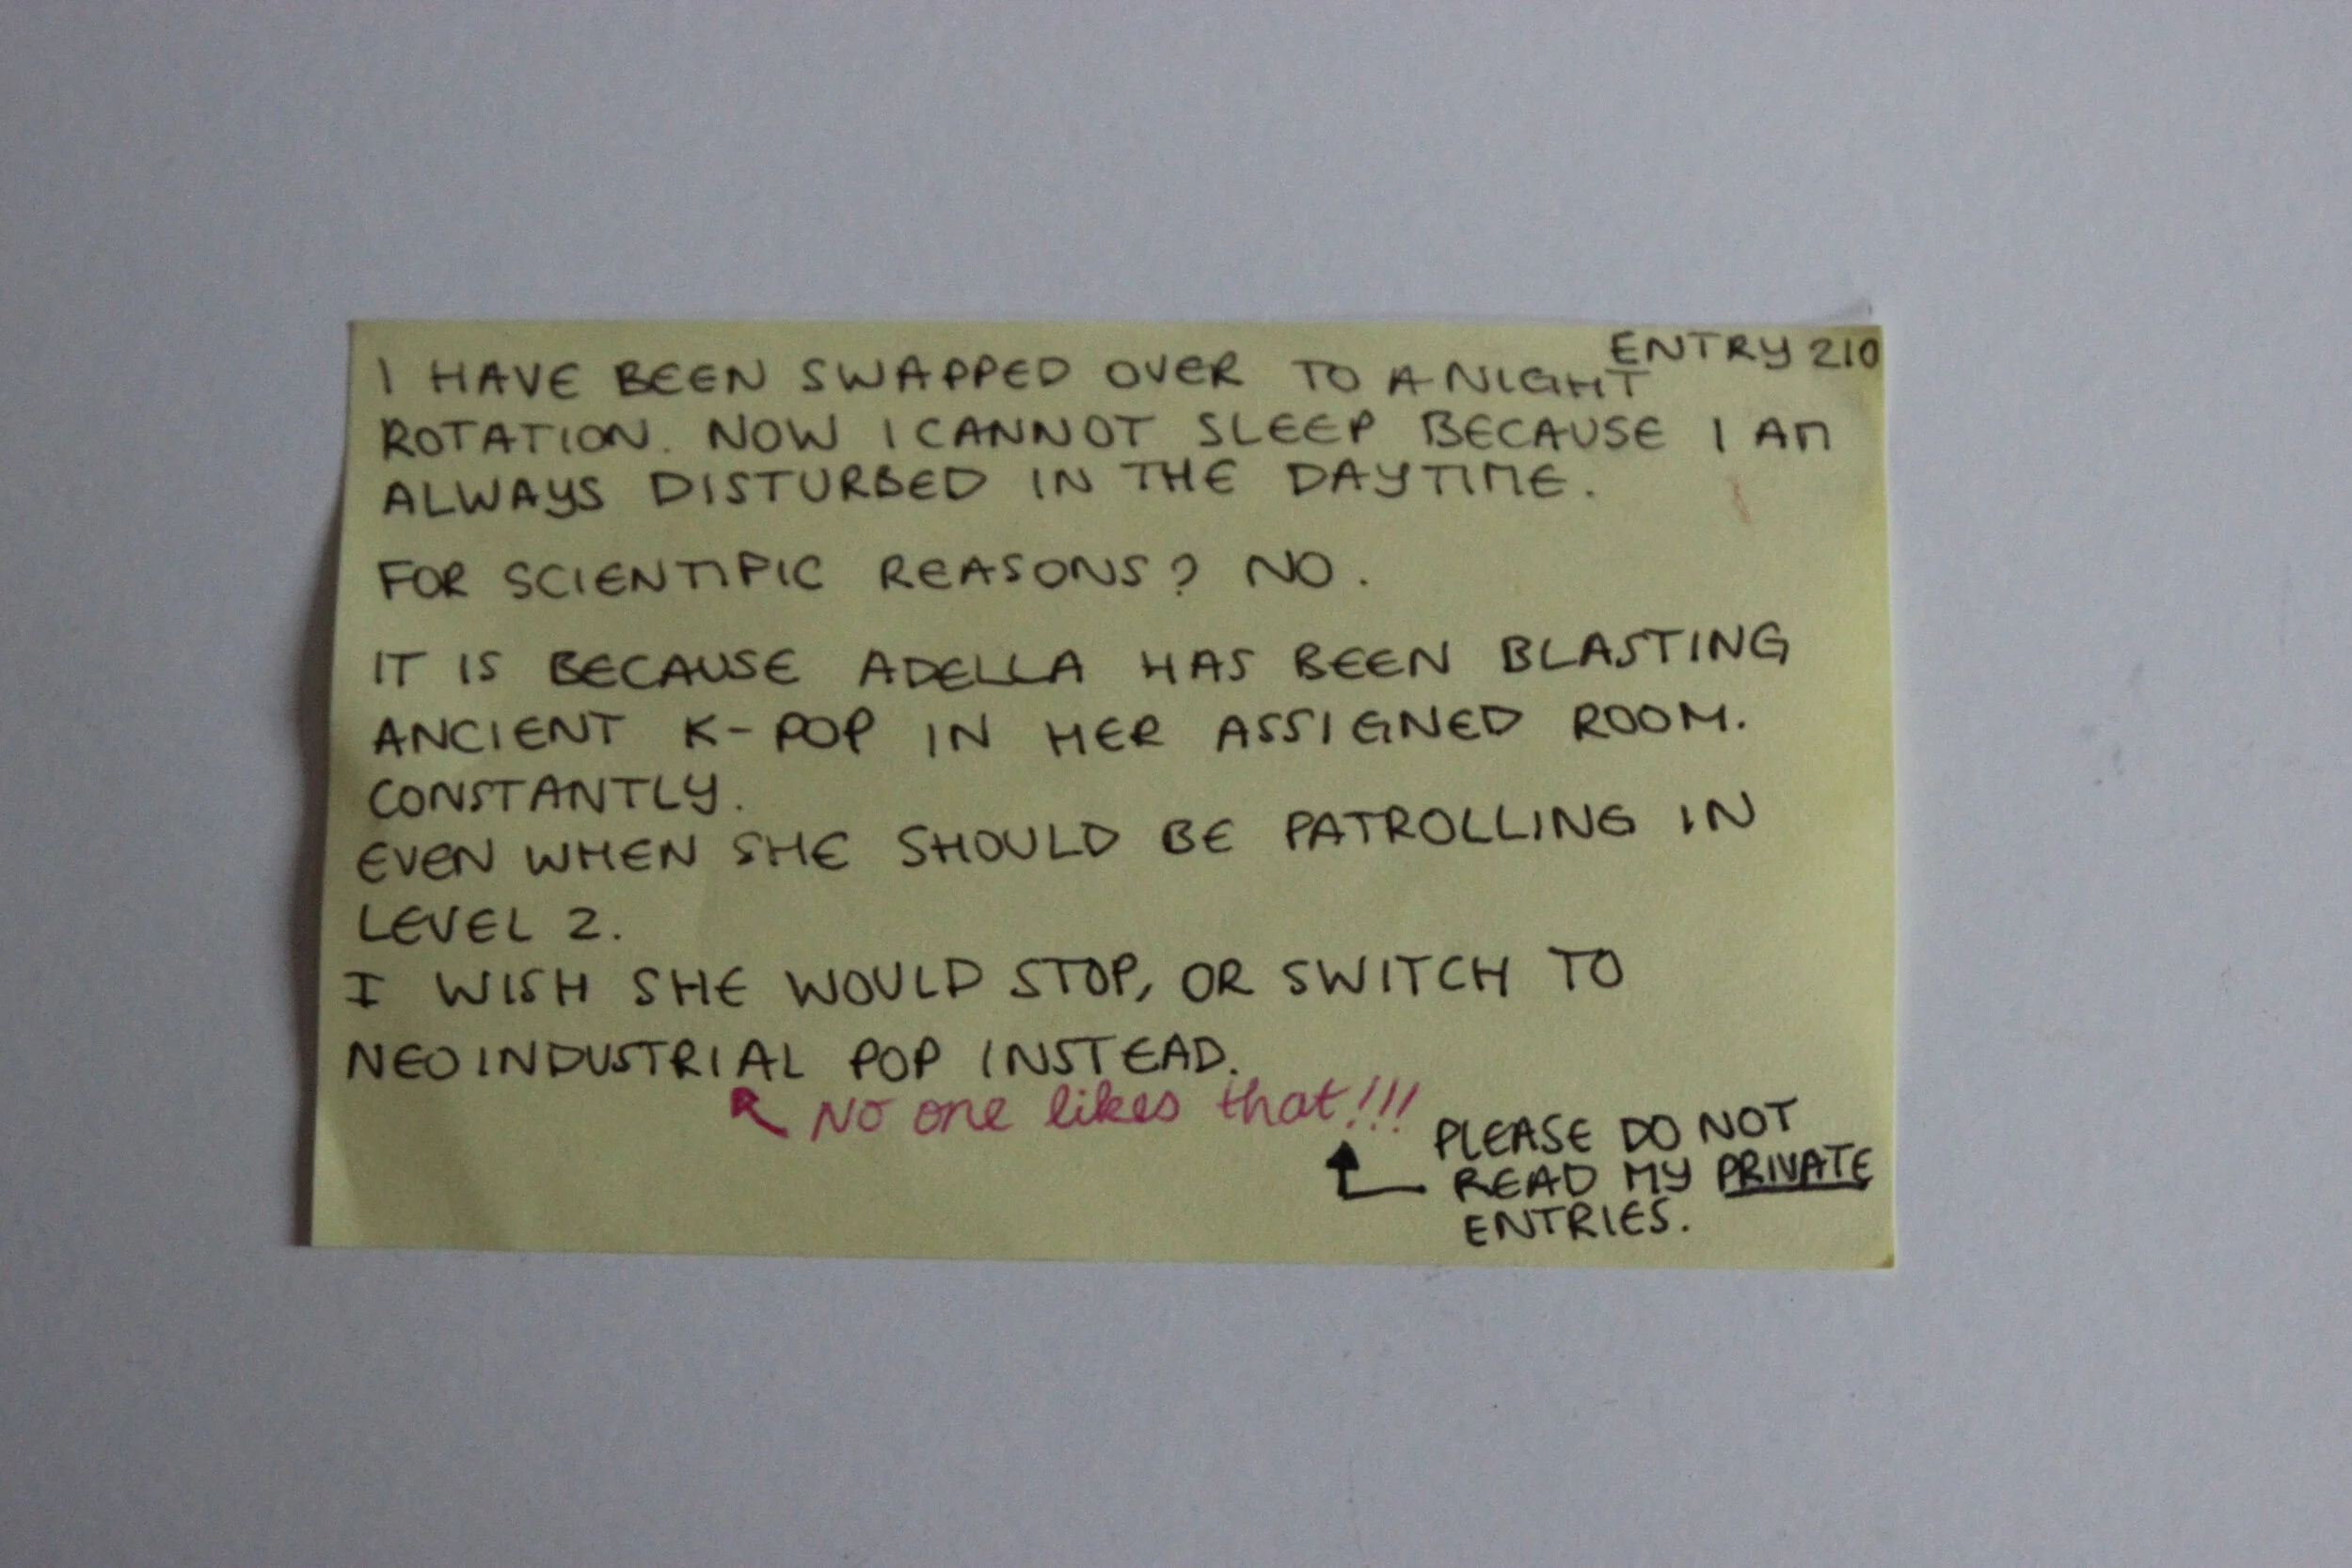 ENTRY 210
I HAVE BEEN SWAPPED OVER TO A NIGHT
ROTATION. NOW I CANNOT SLEEP BECAUSE I AM
ALWAYS DISTURBED IN THE DAYTIME.
FOR SCIENTIFIC REASONS? NO.
IT IS BECAUSE ADELLA HAS BEEN BLASTING
ANCIENT K-POP IN HER ASSIGNED ROOM.
CONSTANTLY.
EVEN WHEN SHE SHOULD BE PATROLLING IN
LEVEL 2.
I WISH SHE WOULD STOP, OR SWITCH TO
NEOINDUSTRIAL POP INSTEAD.
No one likes that!!!
PLEASE DO NOT
READ MY PRIVATE
ENTRIES.